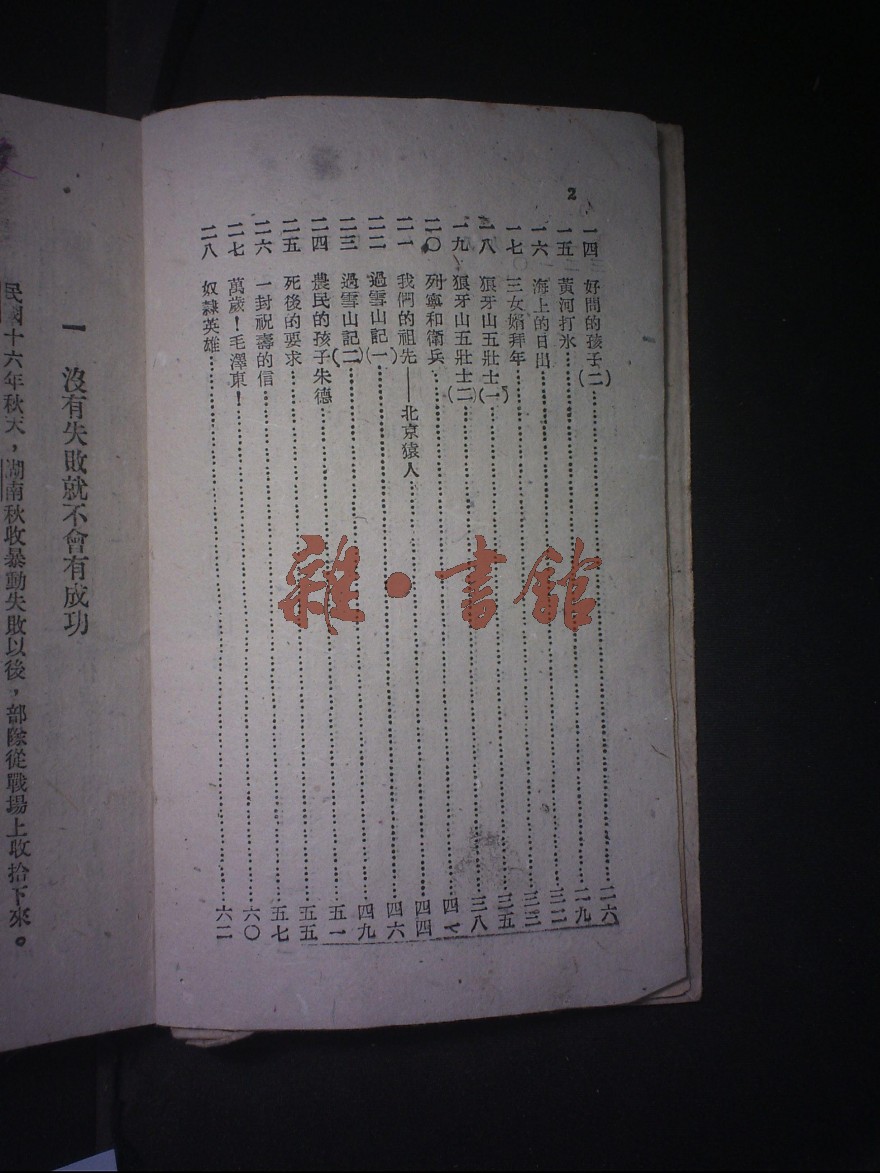 2
一四 好問的孩子(二)……二六
一五 黃河打氷……二九
一六 海上的日出……三二
一七 三女婿拜年……三三
一八 狼牙山五壯士(一)……三五
一九 狼牙山五壯士(二)……三八
二〇 列寧和衛兵……四
二一 我們的祖先——北京猿人……四四
二二 過雪山記(一)……四六
二三 過雪山記(二)……四九
二四 農民的孩子朱德……五一
二五 死後的要求……五五
二六 一封祝壽的信……五七
二七 萬歲!毛澤東!……六〇
二八 奴隸英雄……六二
雜·書館
一 沒有失敗就不會有成功
民國十六年秋天,湖南秋收暴動失敗以後,部隊從戰場上收拾下來。